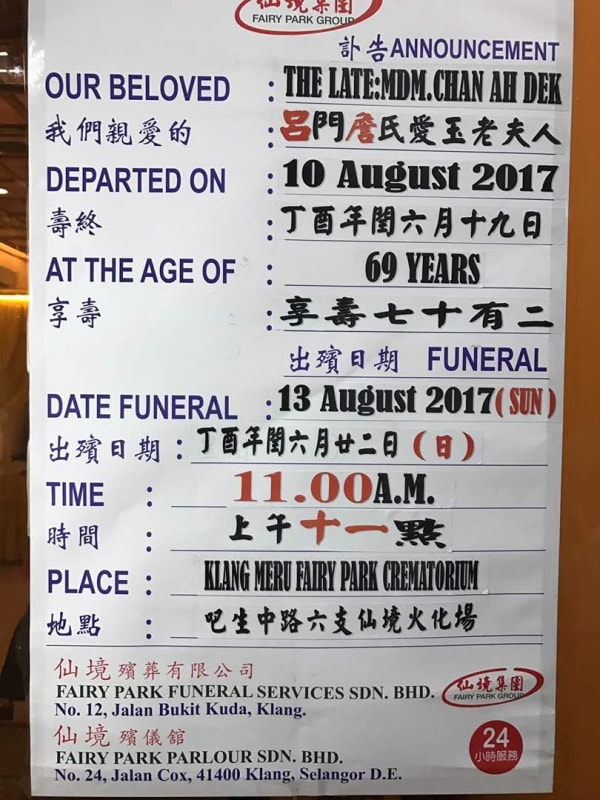 仙境集團
FAIRY PARK GROUP
訃告ANNOUNCEMENT
OUR BELOVED : THE LATE:MDM.CHAN AH DEK
我們親愛的 : 呂門詹氏愛玉老夫人
DEPARTED ON : 10 August 2017
壽終 : 丁酉年閏六月十九日
AT THE AGE OF : 69 YEARS
享壽 : 享壽七十有二
出殯日期 FUNERAL
DATE FUNERAL : 13 August 2017(SUN)
出殯日期 : 丁酉年閏六月廿二日(日)
TIME : 11.00A.M.
時間 : 上午十一點
PLACE : KLANG MERU FAIRY PARK CREMATORIUM
地點 : 吧生中路六支仙境火化場
仙境殯葬有限公司
FAIRY PARK FUNERAL SERVICES SDN. BHD.
No. 12, Jalan Bukit Kuda, Klang.
仙境集團
FAIRY PARK GROUP
仙境殯儀館
FAIRY PARK PARLOUR SDN. BHD.
No. 24, Jalan Cox, 41400 Klang, Selangor D.E.
24
小時服務